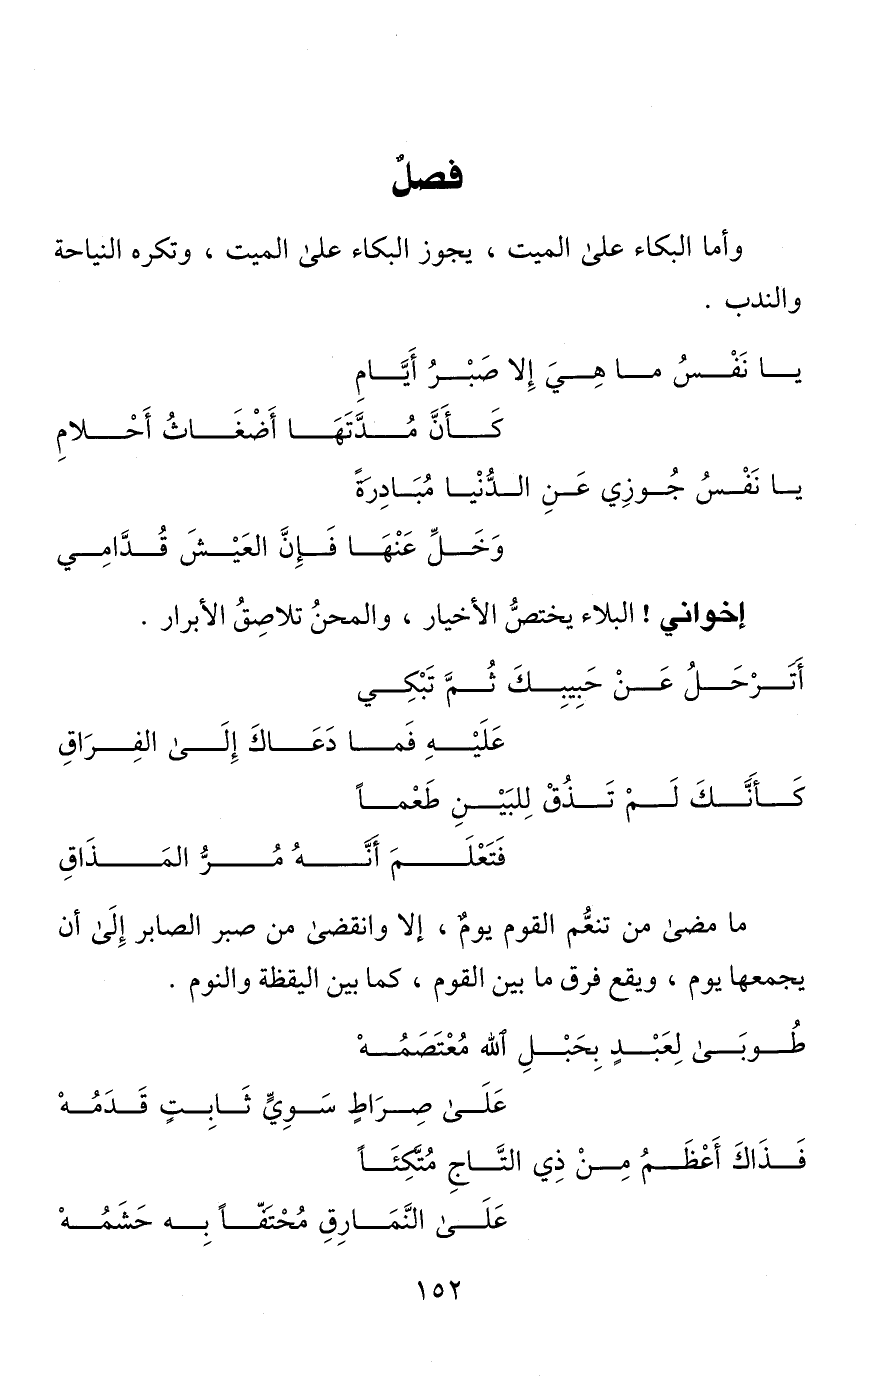 فصلٌ
وأما البكاء علىٰ الميت ، يجوز البكاء علىٰ الميت ، وتكره النياحة
والندب .
يـا نَفْـسُ مـا هِـيَ إِلا صَبْـرُ أَيَّـامِ
كَـأَنَّ مُـدَّتَهَـا أَضْغَـاثُ أَحْـلامِ
يـا نَفْـسُ جُـوزِي عَـنِ الـدُّنْيـا مُبَـادِرَةً
وَخَـلِّ عَنْهَـا فَـإِنَّ العَيْـشَ قُـدَّامِـي
إخواني ! البلاء يختصُّ الأخيار ، والمحنُ تلاصِقُ الأبرار .
أَتَـرْحَـلُ عَـنْ حَبِيبِـكَ ثُـمَّ تَبْكِـي
عَلَيْـهِ فَمـا دَعَـاكَ إِلَـىٰ الفِـرَاقِ
كَـأَنَّـكَ لَـمْ تَـذُقْ لِلبَيْـنِ طَعْمـاً
فَتَعْلَـمَ أَنَّـهُ مُـرُّ المَـذَاقِ
ما مضىٰ من تنعُّم القوم يومٌ ، إلا وانقضىٰ من صبر الصابر إِلَىٰ أن
يجمعها يوم ، ويقع فرق ما بين القوم ، كما بين اليقظة والنوم .
طُـوبَـىٰ لِعَبْـدٍ بِحَبْـلِ ٱلله مُعْتَصَمُـهْ
عَلَـىٰ صِـرَاطٍ سَـوِيٍّ ثَـابِـتٍ قَـدَمُـهْ
فَـذَاكَ أَعْظَـمُ مِـنْ ذِي التَّـاجِ مُتَّكِئَـاً
عَلَـىٰ النَّمَـارِقِ مُحْتَفّـاً بِـه حَشَمُـهْ
١٥٢